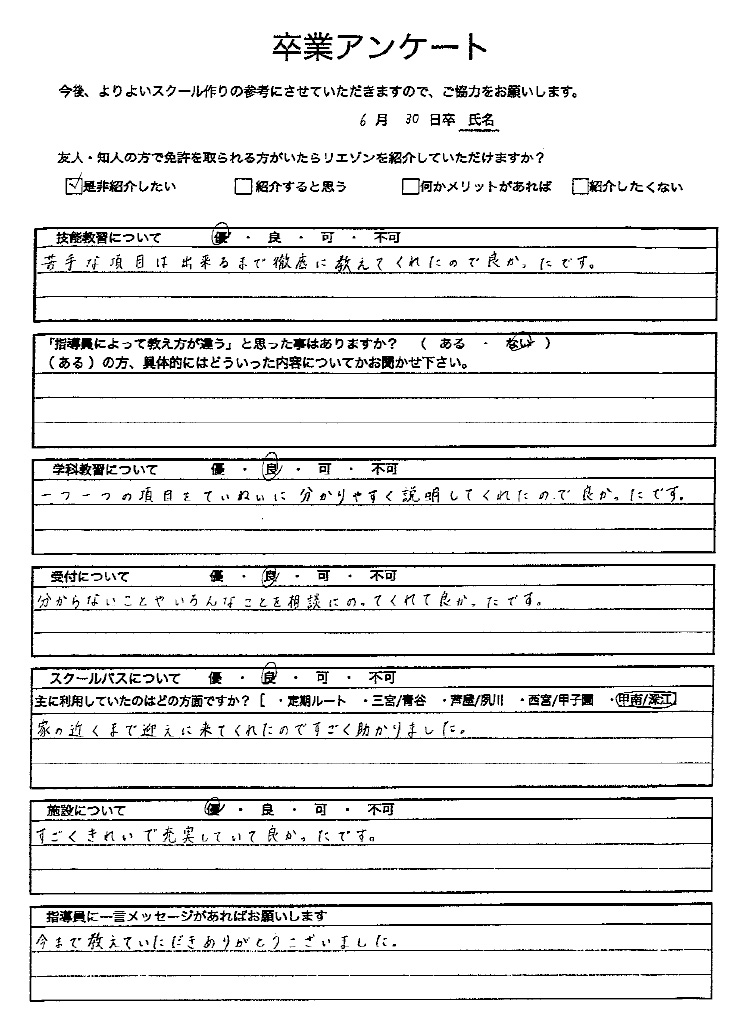 卒業アンケート
今後、よりよいスクール作りの参考にさせていただきますので、ご協力をお願いします。
6月 30日卒 氏名
友人・知人の方で免許を取られる方がいたらリエゾンを紹介していただけますか?
☑是非紹介したい □紹介すると思う □何かメリットがあれば □紹介したくない
技能教習について 優 ・ 良 ・ 可 ・ 不可
苦手な項目は出来るまで徹底に教えてくれたので良かったです。
「指導員によって教え方が違う」と思った事はありますか? ( ある ・ ない )
(ある)の方、具体的にはどういった内容についてかお聞かせ下さい。
学科教習について 優 ・ 良 ・ 可 ・ 不可
一つ一つの項目をていねいに分かりやすく説明してくれたので良かったです。
受付について 優 ・ 良 ・ 可 ・ 不可
分からないことやいろんなことを相談にのってくれて良かったです。
スクールバスについて 優 ・ 良 ・ 可 ・ 不可
主に利用していたのはどの方面ですか? [ ・定期ルート ・三宮/青谷 ・芦屋/夙川 ・西宮/甲子園 ・甲南/深江]
家の近くまで迎えに来てくれたのですごく助かりました。
施設について 優 ・ 良 ・ 可 ・ 不可
すごくきれいで充実していて良かったです。
指導員に一言メッセージがあればお願いします
今まで教えていただきありがとうございました。